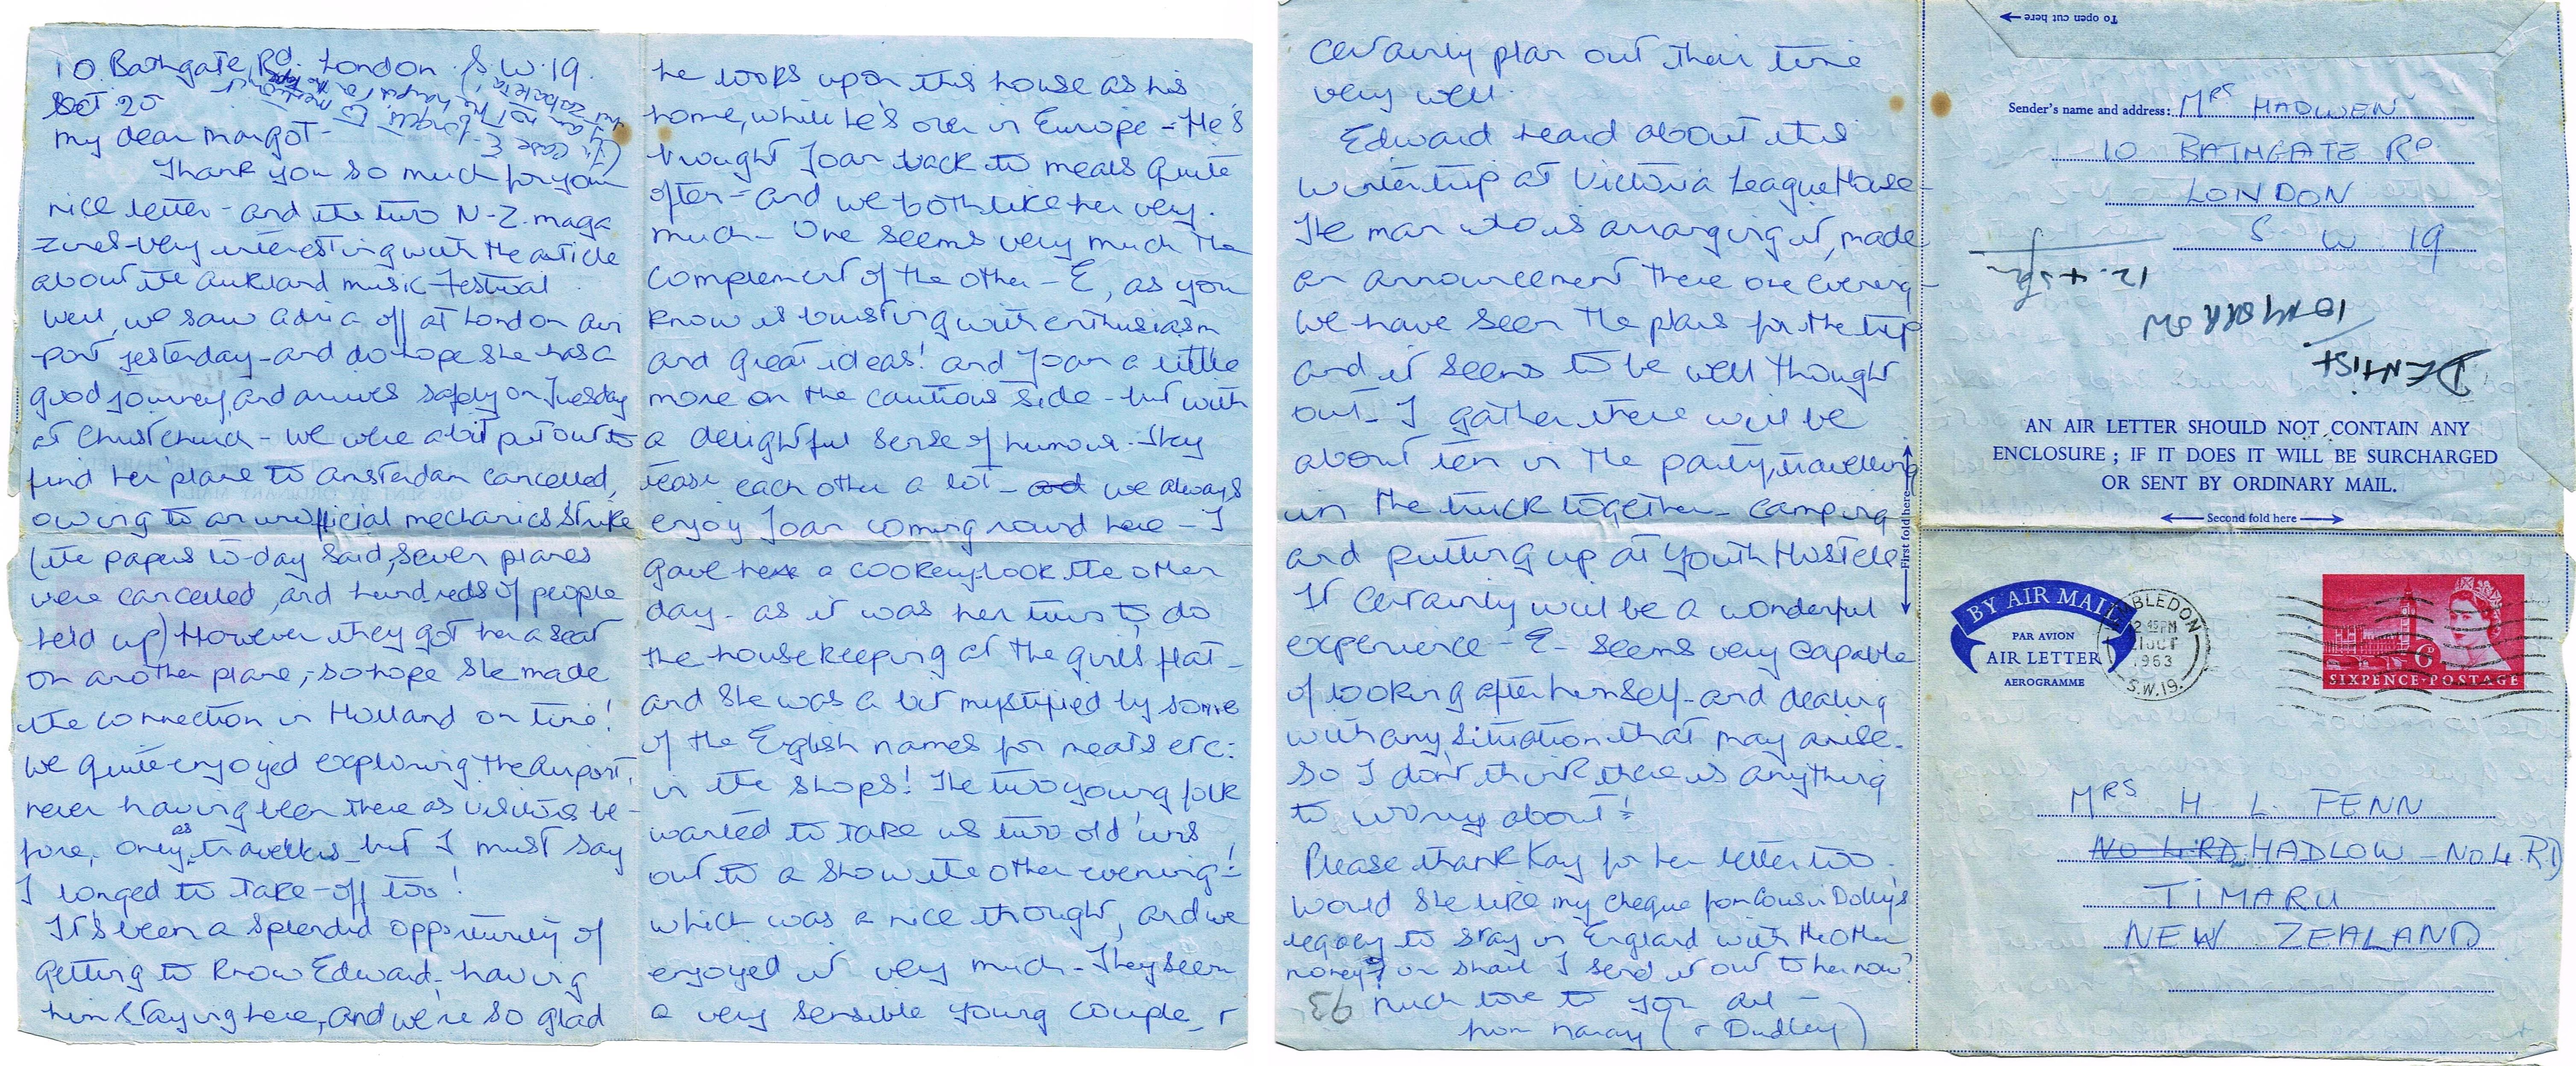 10. Bathgate Rd. London. S.W.19.
Oct 20
My dear Margot-
(In case E. forgets to mention it
I am not
Thank you so much for your
nice letter - and the two N-Z. maga
zines - very interesting with the article
about the Aukland music-Festival.
Well, we saw Adria off at London Air
-port yesterday - and do hope she has a
good journey, and arrives safely on Tuesday
at Christchurch - we were a bit put out to
find her plane to Amsterdam cancelled,
owing to an unofficial mechanics strike
(the papers to-day said, seven planes
were cancelled, and hundreds of people
held up) However they got her a seat
on another plane, - so hope she made
the connection in Holland on time!
We quite enjoyed exploring the Airport,
never having been there as visitors be-
fore, only as travellers - but I must say
I longed to take-off too!
It's been a splendid opportunity of
getting to know Edward - having
him staying here, and we're so glad
he looks upon this house as his
home, while he's over in Europe - He's
brought Joan back to meals quite
often - and we both like her very.
much - One seems very much the
complement of the other - E, as you
know is bursting with enthusiasm
and great ideas! and Joan a little
more on the cautious side - but with
a delightful sense of humour. They
tease each other a lot - and we always
enjoy Joan coming round here - I
gave her a cookery-book the other
day - as it was her turn to do
the housekeeping at the girls flat -
and she was a bit mystified by some
of the English names for meats etc:
in the shops! The two young folk
wanted to take us two old 'uns
out to a show the other evening!
which was a nice thought, and we
enjoyed it very much - They seem
a very sensible young couple, +
certainly plan out their time
very well.
Edward heard about this
winter trip at Victoria League House -
The man who is arranging it, made
an announcement there one evening -
We have seen the plans for the trip
and it seems to be well thought
out - I gather there will be
about ten in the party, travelling
in the truck together - camping
and putting up at Youth Hostels
It certainly will be a wonderful
experience - E - seems very capable
of looking after himself - and dealing
with any situation that may arise -
so I don't think there is anything
to worry about!
Please thank Kay for her letter too.
Would she like my cheque from Cousin Dolly's
legacy to stay in England with the other
money? or shall I send it out to her now?
Much love to you all -
from Nancy (+ Dudley)
93
To open cut here
Sender's name and address: MRS HADWEN
10 BATHGATE RD
LONDON
S W 19
12.45pm
TOMORROW
DENTIST
AN AIR LETTER SHOULD NOT CONTAIN ANY
ENCLOSURE ; IF IT DOES IT WILL BE SURCHARGED
OR SENT BY ORDINARY MAIL.
Second fold here
First fold here
BY AIR MAIL
PAR AVION
AIR LETTER
AEROGRAMME
WIMBLEDON
2 45 PM
21 OCT
1963
S.W.19.
6D
SIXPENCE·POSTAGE
MRS H. L. FENN
No 4 RD, HADLOW - No 4. RD
TIMARU
NEW ZEALAND